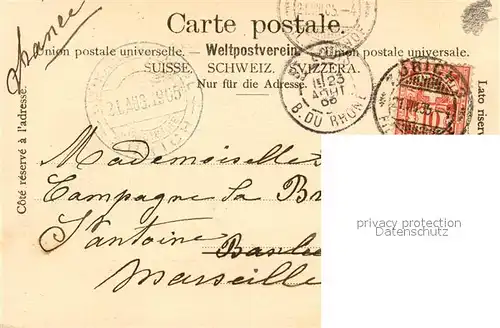 France
Carte postale.
Union postale universelle. – Weltpostverein. – Union postale universale.
SUISSE. SCHWEIZ. SVIZZERA.
Nur für die Adresse.
Côté réservé à l'adresse.
Lato riser
21.AUG.1905
23
AOUT
B. DU RHONE
Mademoiselle
Campagne la Br
St Antoine Banlie
Marseille
privacy protection
Datenschutz